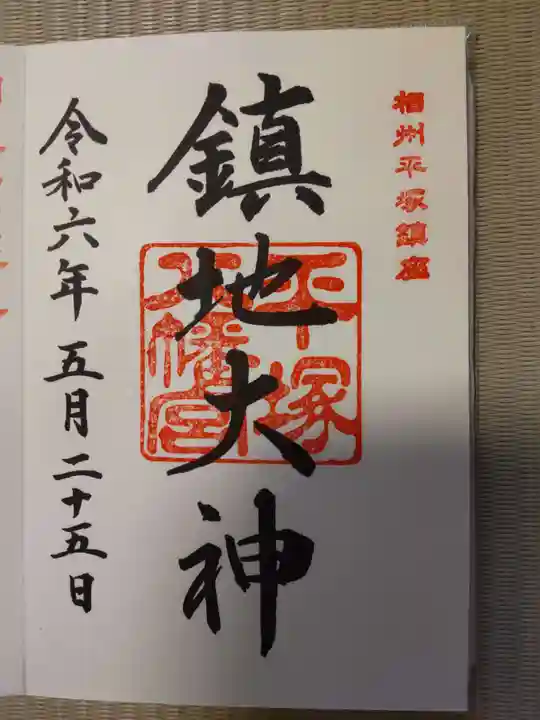 相州平塚鎮座
鎮地大神
平塚
八幡宮
令和六年五月二十五日